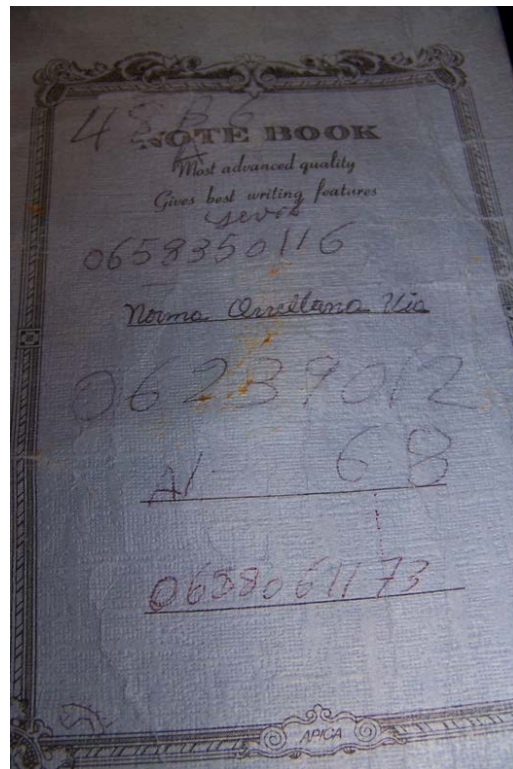 48B6
NOTE BOOK
A
Most advanced quality
Gives best writing features
0658350116
Norma Orrellana Via
06239012
A/ 68
0658061173
APICA